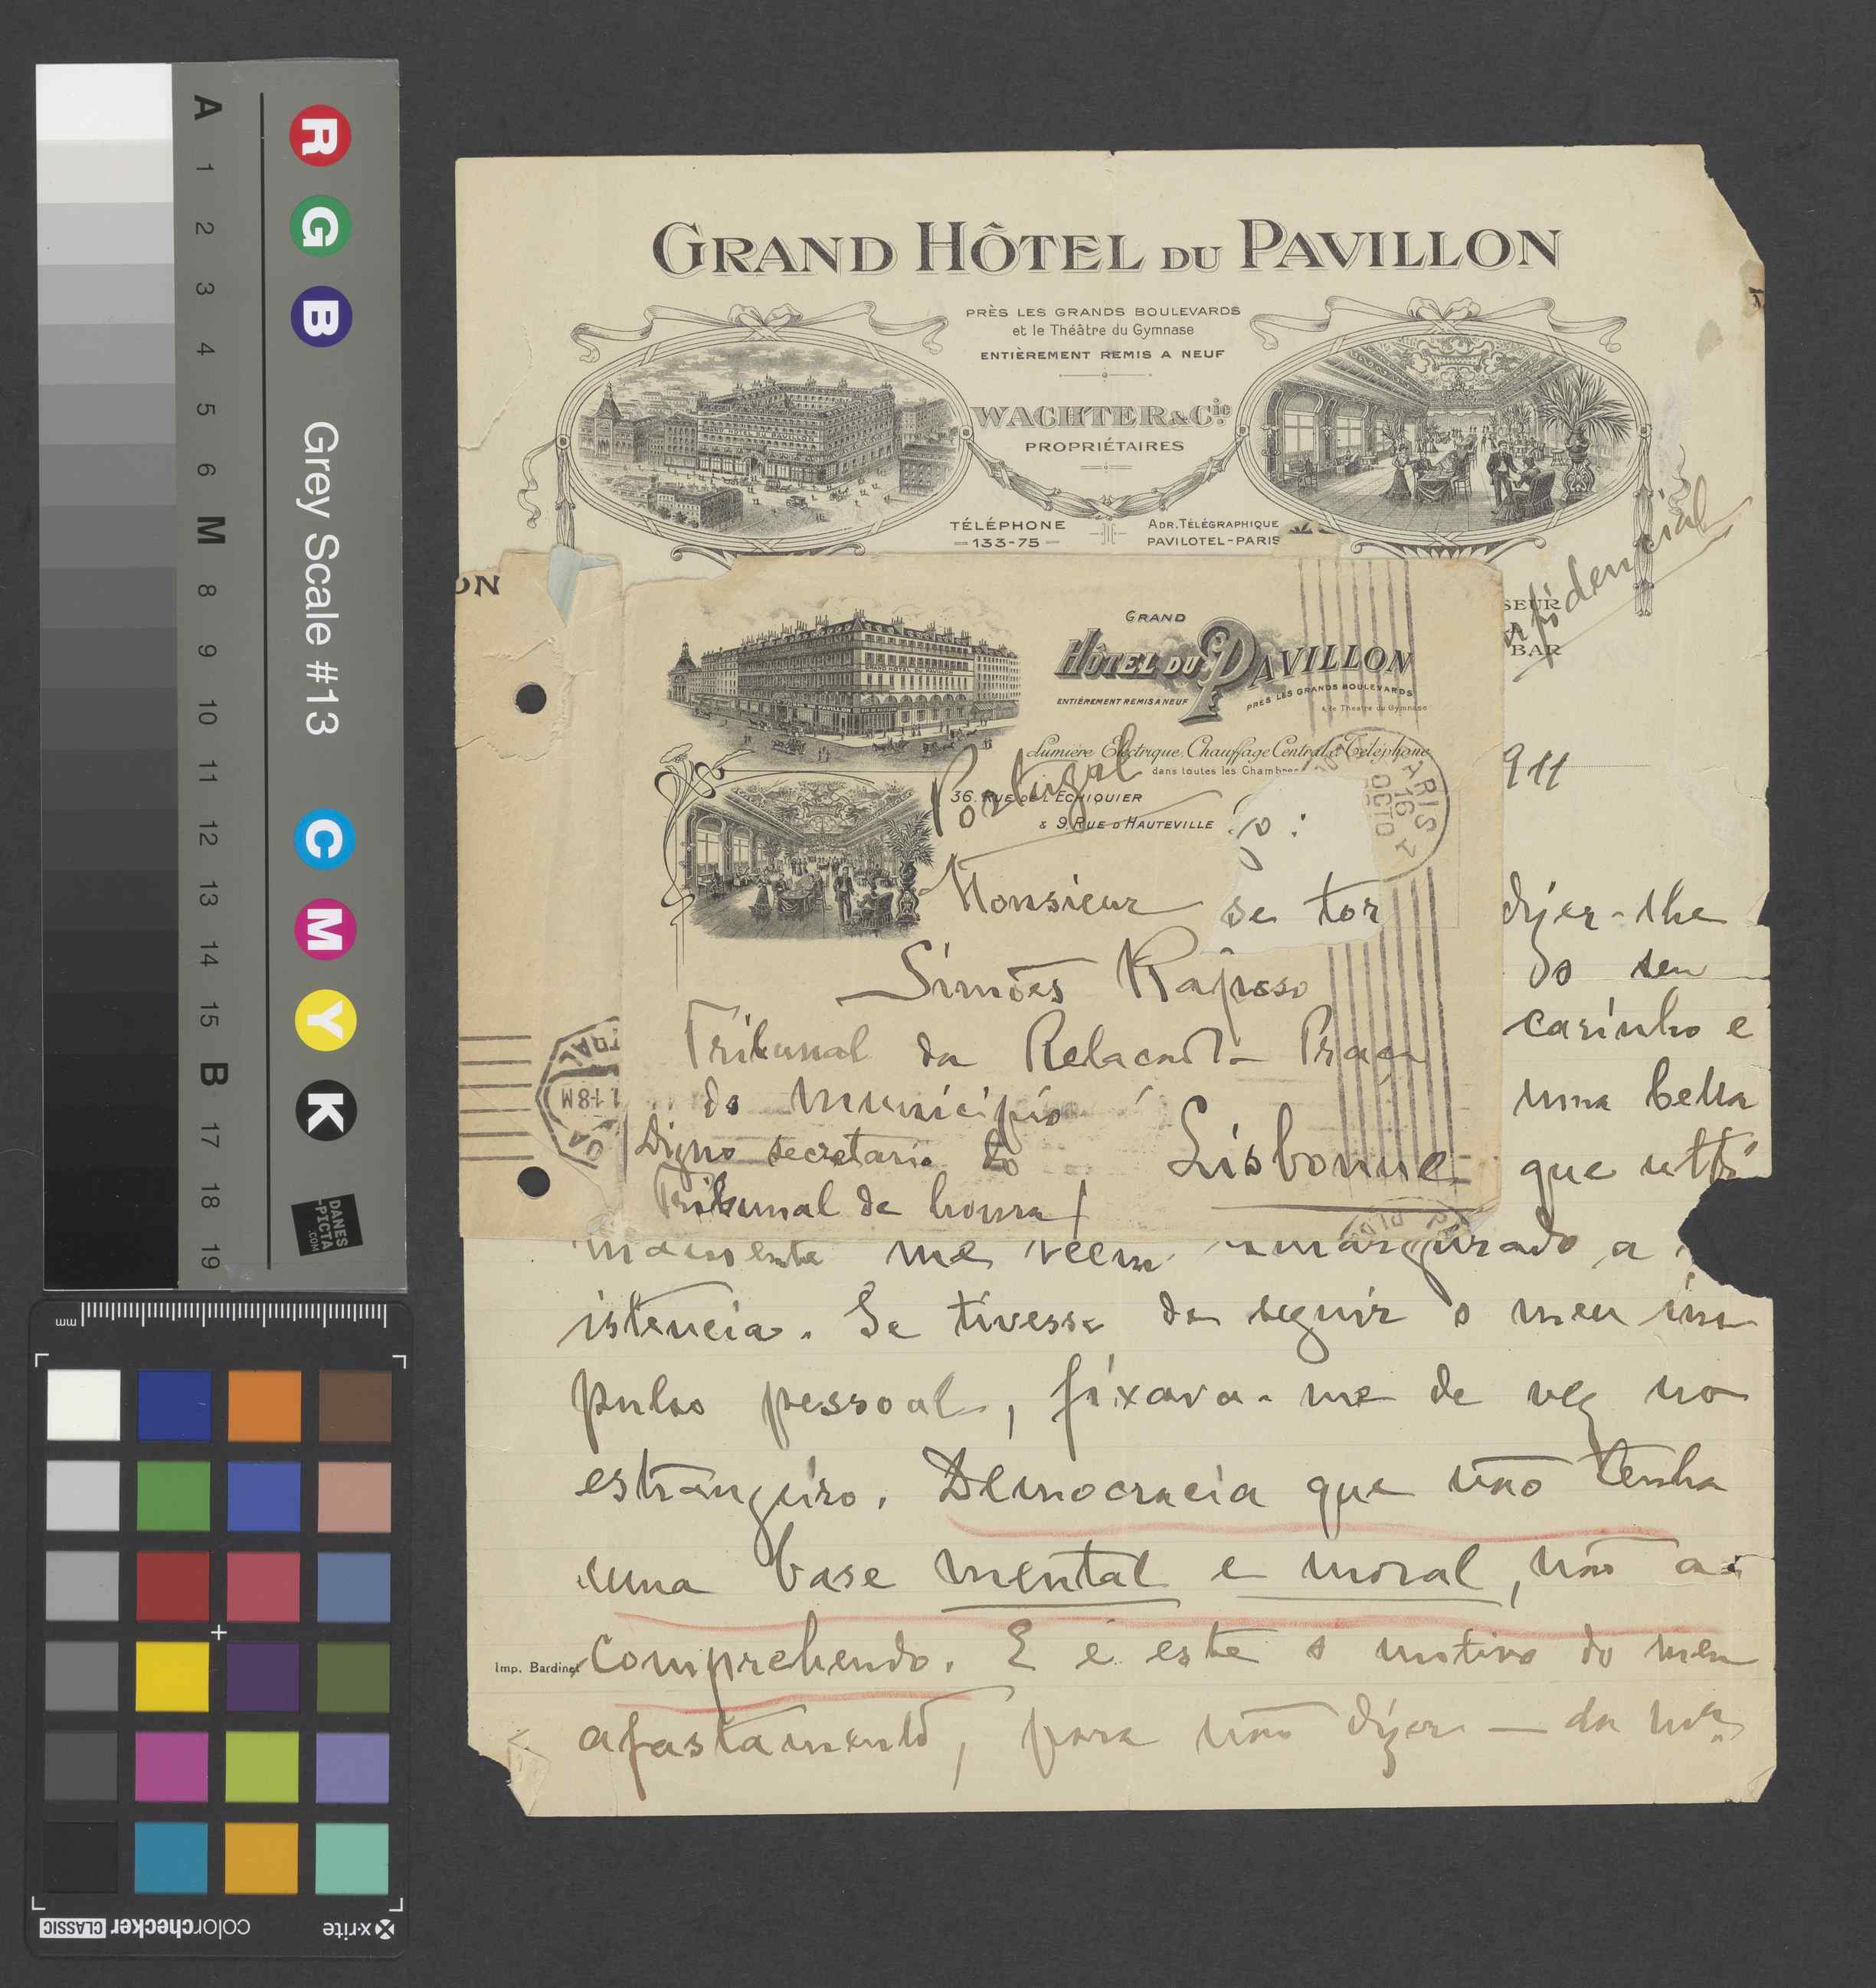 GRAND HÔTEL DU PAVILLON
PRÈS LES GRANDS BOULEVARDS
et le Théâtre du Gymnase
ENTIÈREMENT REMIS A NEUF
WACHTER & Cie
PROPRIÉTAIRES
TÉLÉPHONE
133-75
ADR. TÉLÉGRAPHIQUE
PAVILOTEL-PARIS
SEUR
BAR
ON
GRAND
HÔTEL DU PAVILLON
ENTIÈREMENT REMIS A NEUF
PRÈS LES GRANDS BOULEVARDS
& le Theatre du Gymnase
Lumière Electrique, Chauffage Central & Téléphone
dans toutes les Chambres
Portugal
36. RUE DE L'ECHIQUIER
& 9. RUE D'HAUTEVILLE
PARIS
16
OCTO
911
Monsieur
se tor
Simões Raposo
Tribunal da Relação - Praça
do Municipio
Digno secretario do
Lisbonne
Tribunal de honra
dizer-lhe
do seu
carinho e
uma bella
que ulti
mamente me veem amargurado a
istencia. Se tivesse de seguir o meu im
pulso pessoal, fixava-me de vez no
estrangeiro. Democracia que não tenha
uma base mental e moral, não a
comprehendo. E é este o motivo do meu
Imp. Bardinet
afastamento, para não dizer — da
A
1
2
3
4
5
6
M
8
9
10
11
12
13
14
15
B
17
18
19
R
G
B
Grey Scale #13
C
M
Y
K
DANES
-PICTA
.COM
mm
colorchecker CLASSIC
x-rite